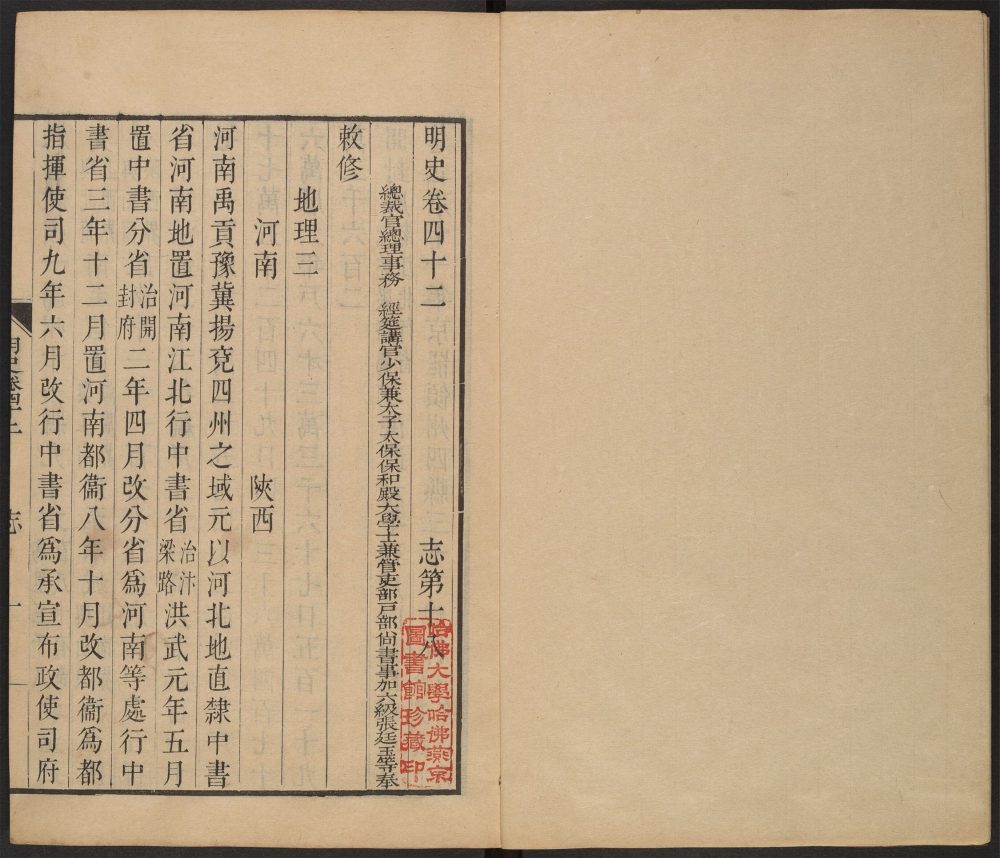 明史卷四十二 志第十八
總裁官總理事務 經筵講官少保兼太子太保保和殿大學士兼管吏部戶部尚書事加六級張廷玉等奉
敕修
地理三
河南 陝西
河南禹貢豫冀揚兗四州之域元以河北地直隸中書
省河南地置河南江北行中書省治汴梁路洪武元年五月
置中書分省治開封府二年四月改分省爲河南等處行中
書省三年十二月置河南都衞八年十月改都衞爲都
指揮使司九年六月改行中書省爲承宣布政使司府
明史卷四十二 志 一
哈佛大學哈佛燕京
圖書館珍藏印